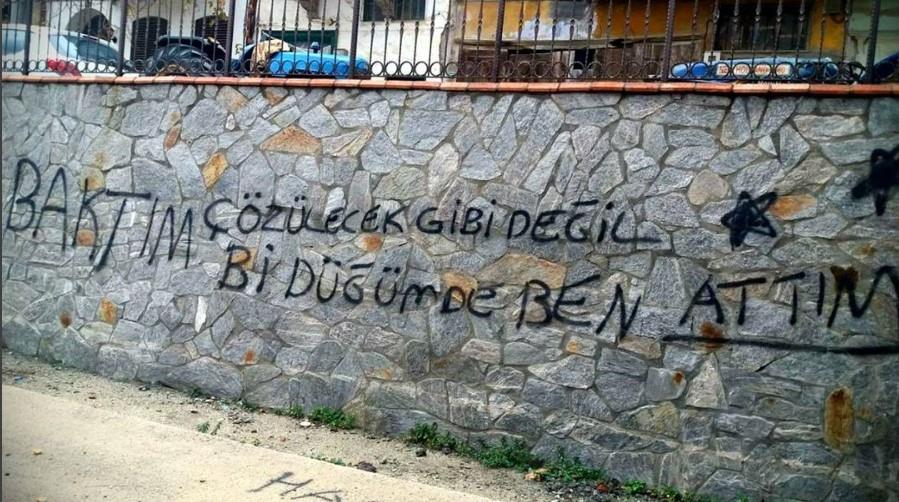 BAKTIM ÇÖZÜLECEK GİBİ DEĞİL
Bİ DÜĞÜMDE BEN ATTIM
HA